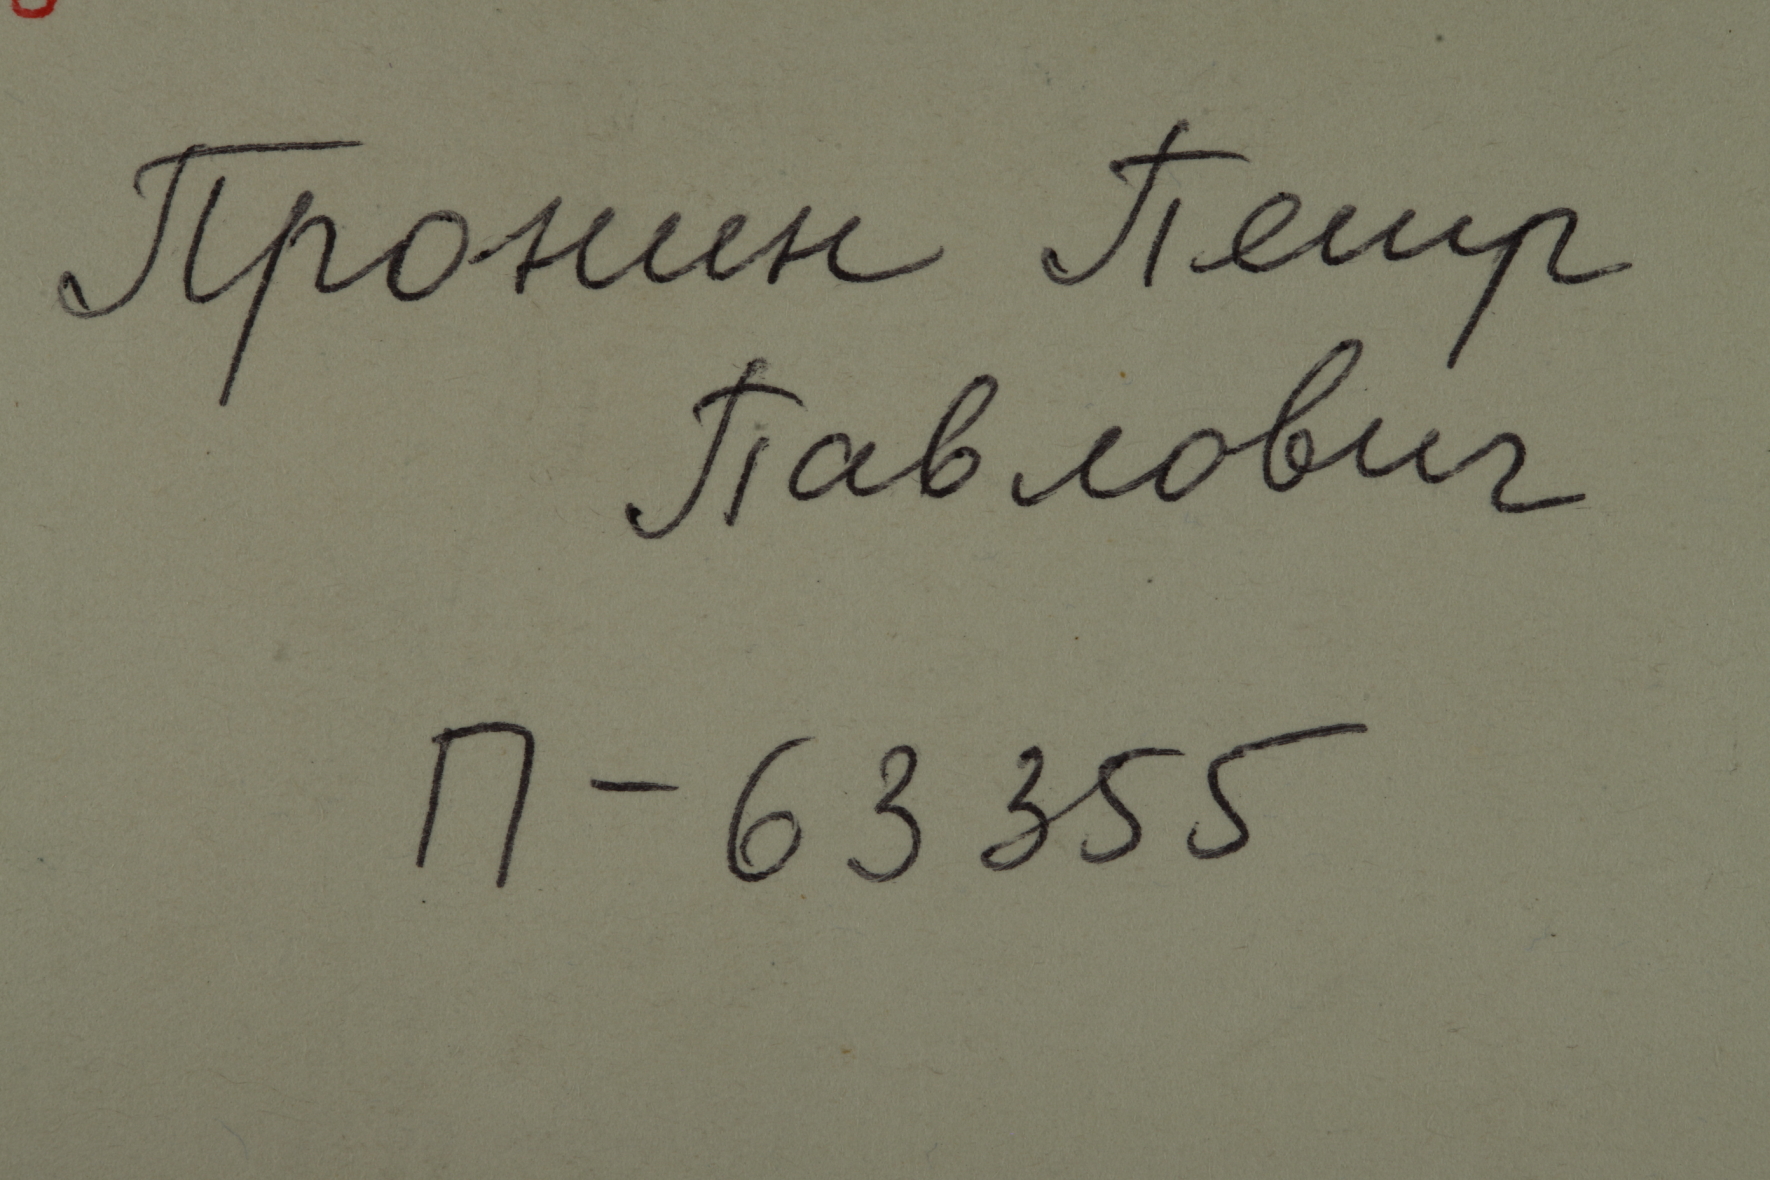 Пронин Петр
Павлович
П-63355